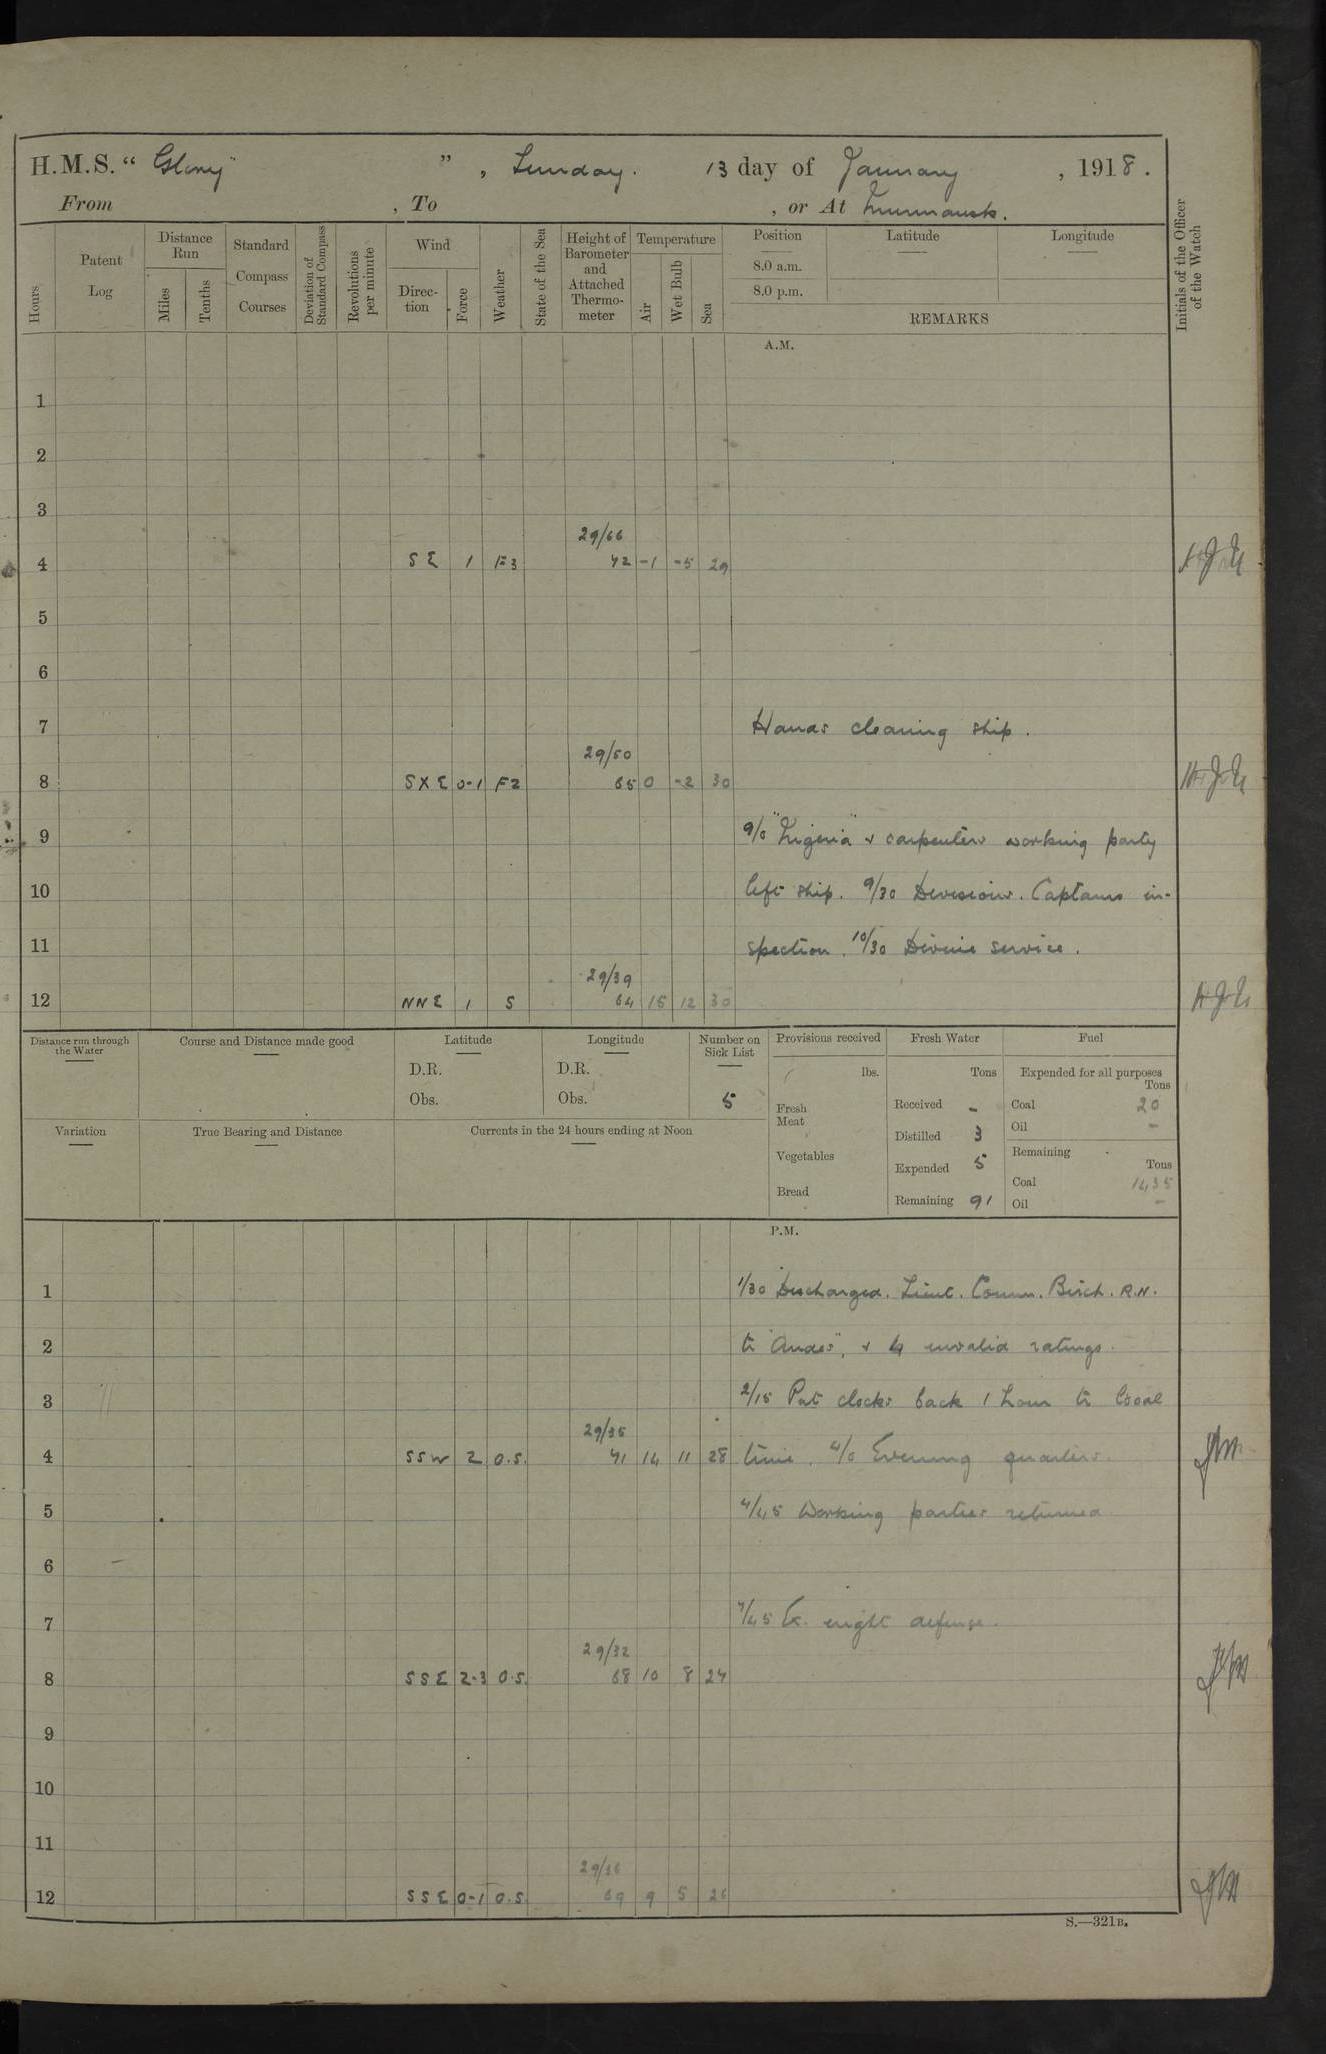 H.M.S. "Glory", Sunday. 13 day of January, 1918.
From , To , or At Murmansk.
Hours
Patent Log
Distance Run
Miles
Tenths
Standard Compass Courses
Deviation of Standard Compass
Revolutions per minute
Wind
Direction
Force
Weather
State of the Sea
Height of Barometer and Attached Thermometer
Temperature
Air
Wet Bulb
Sea
Position
Latitude
Longitude
8.0 a.m.
8.0 p.m.
REMARKS
Initials of the Officer of the Watch
A.M.
1
2
3
29/66
4 SE 1 F3 72 -1 -5 29
5
6
7 Hands cleaning ship.
29/50
8 SXE 0-1 F2 65 0 -2 30
9 9/0 "Nigeria" & carpenters working party
10 left ship. 9/30 Divisions. Captains in-
11 spection. 10/30 Divine service.
29/39
12 NNE 1 S 64 15 12 30
Distance run through the Water
Course and Distance made good
Latitude
D.R.
Obs.
Longitude
D.R.
Obs.
Number on Sick List
5
Variation
True Bearing and Distance
Currents in the 24 hours ending at Noon
Provisions received
lbs.
Fresh Meat
Vegetables
Bread
Fresh Water
Tons
Received -
Distilled 3
Expended 5
Remaining 91
Fuel
Expended for all purposes
Tons
Coal 20
Oil -
Remaining
Tons
Coal 1435
Oil -
P.M.
1 1/30 Discharged. Lieut. Comm. Birch. R.N.
2 to "Andes", & 4 invalid ratings.
3 2/15 Put clocks back 1 hour to local
29/35
4 SSW 2 O.S. 71 14 11 28 time. 4/0 Evening quarters.
5 4/45 Working parties returned
6
7 7/45 Ex. night defence.
29/32
8 SSE 2-3 O.S. 68 10 8 27
9
10
11
29/36
12 SSE 0-1 O.S. 69 9 5 26
S.—321B.